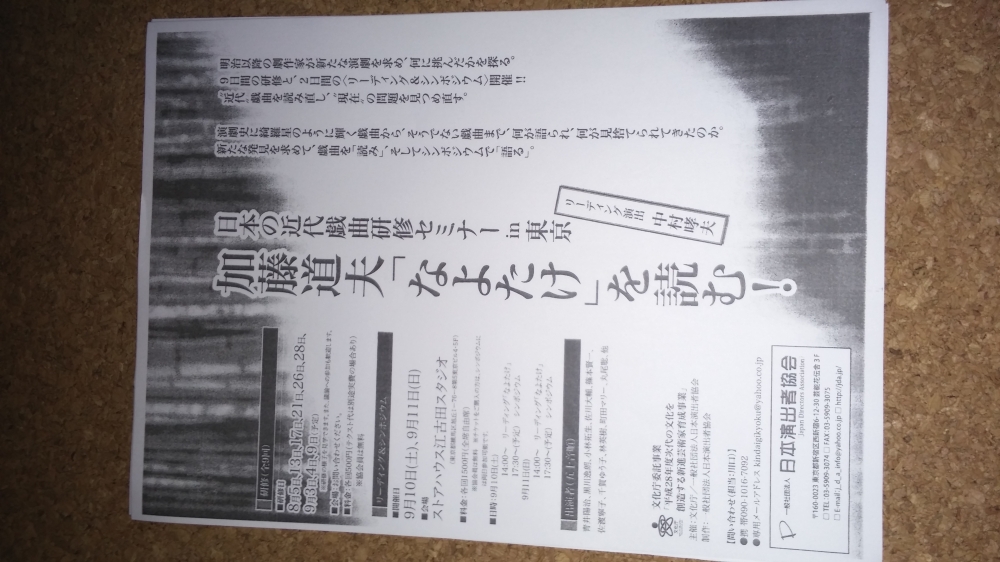 明治以降の劇作家が新たな演劇を求め、何に挑んだかを探る。
9日間の研修と、2日間の〈リーディング&シンポジウム〉開催!!
“近代”戯曲を読み直し、“現在”の問題を見つめ直す。
演劇史に綺羅星のように輝く戯曲から、そうでない戯曲まで、何が語られ、何が見捨てられてきたのか。
新たな発見を求めて、戯曲を「読み」、そしてシンポジウムで「語る」。
日本の近代戯曲研修セミナー in 東京
リーディング演出
中村哮夫
加藤道夫「なよたけ」を読む!
研修(全9回)
■開催日
8月5日、13日、17日、21日、26日、28日、
9月3日、4日、9日(予定)
■料金:各回500円(テキスト代は別途実費の場合あり)
※協会員は無料
リーディング&シンポジウム
■開催日
9月10日(土)、9月11日(日)
■会場
ストアハウス江古田スタジオ
■料金:各回1500円(全席自由席)
■日時:9月10日(土)
14:00〜 リーディング「なよたけ」
17:30〜(予定) シンポジウム
9月11日(日)
14:00〜 リーディング「なよたけ」
17:30〜(予定) シンポジウム
出演者(五十音順)
文化庁委託事業
「平成28年度次代の文化を
創造する新進芸術家育成事業」
主催:文化庁/一般社団法人日本演出者協会
制作:一般社団法人日本演出者協会
【問い合わせ(担当:川口)】
●携帯090-1016-7092
●専用メールアドレス kindaigikyoku@yahoo.co.jp
一般社団法人 日本演出者協会
Japan Directors Association
〒160-0023 東京都新宿区西新宿6-12-30 芸能花伝舎3F
□TEL:03-5909-3074 □FAX:03-5909-3075
□E-mail:j_d_a_info@yahoo.co.jp □http://jda.jp/